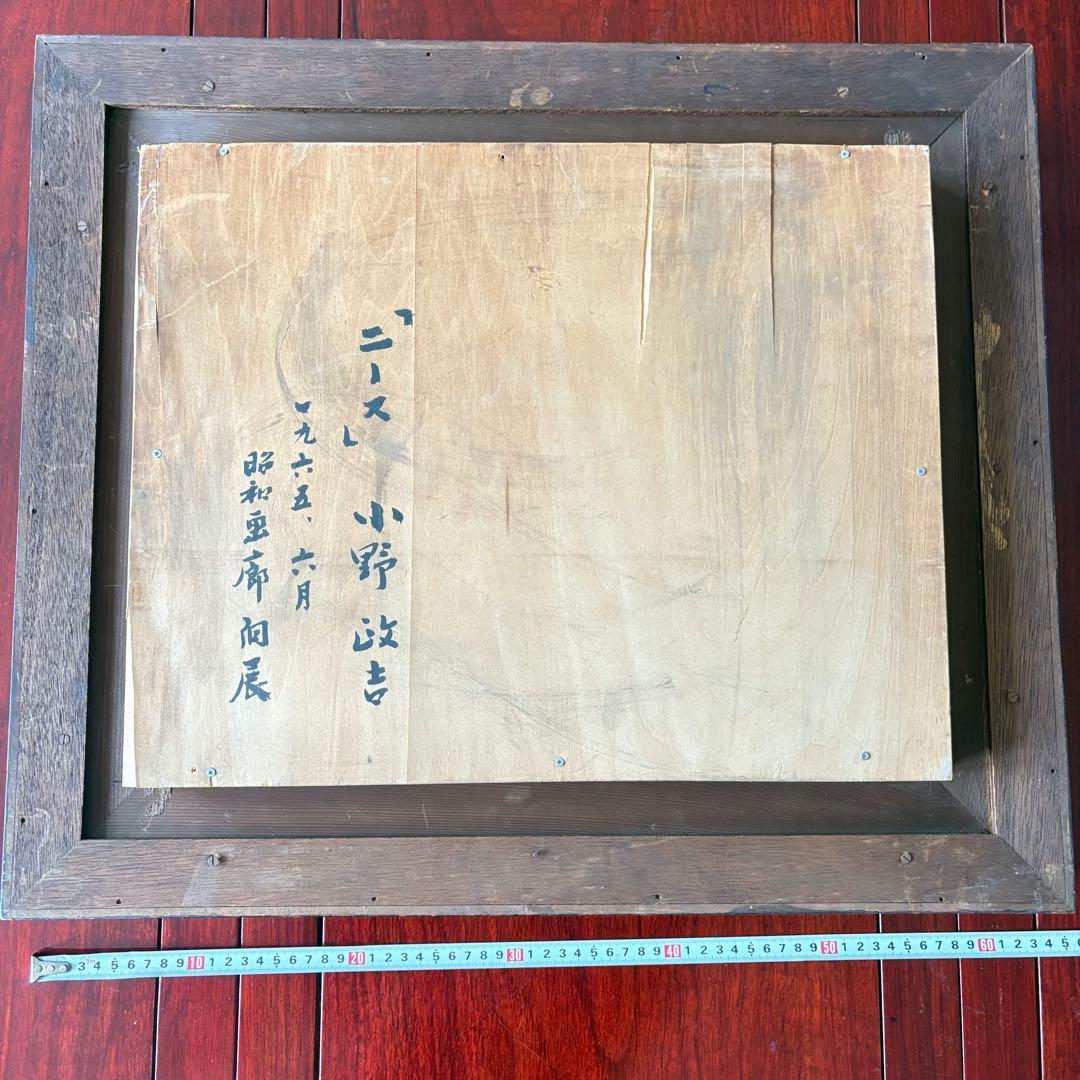 「ニース」 小野政吉
一九六五、六月
昭和画廊個展
3 4 5 6 7 8 9 10 1 2 3 4 5 6 7 8 9 20 1 2 3 4 5 6 7 8 9 30 1 2 3 4 5 6 7 8 9 40 1 2 3 4 5 6 7 8 9 50 1 2 3 4 5 6 7 8 9 60 1 2 3 4 5